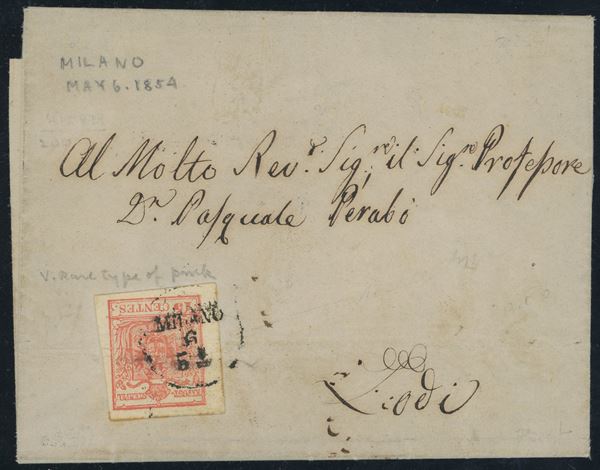 MILANO
MAY 6. 1854
Al Molto Rev.r Sig.re il Sig.re Profeſsore
D.n Paſquale Perabò
V. rare type of pink
CENTES.
MILANO
6
Lodi